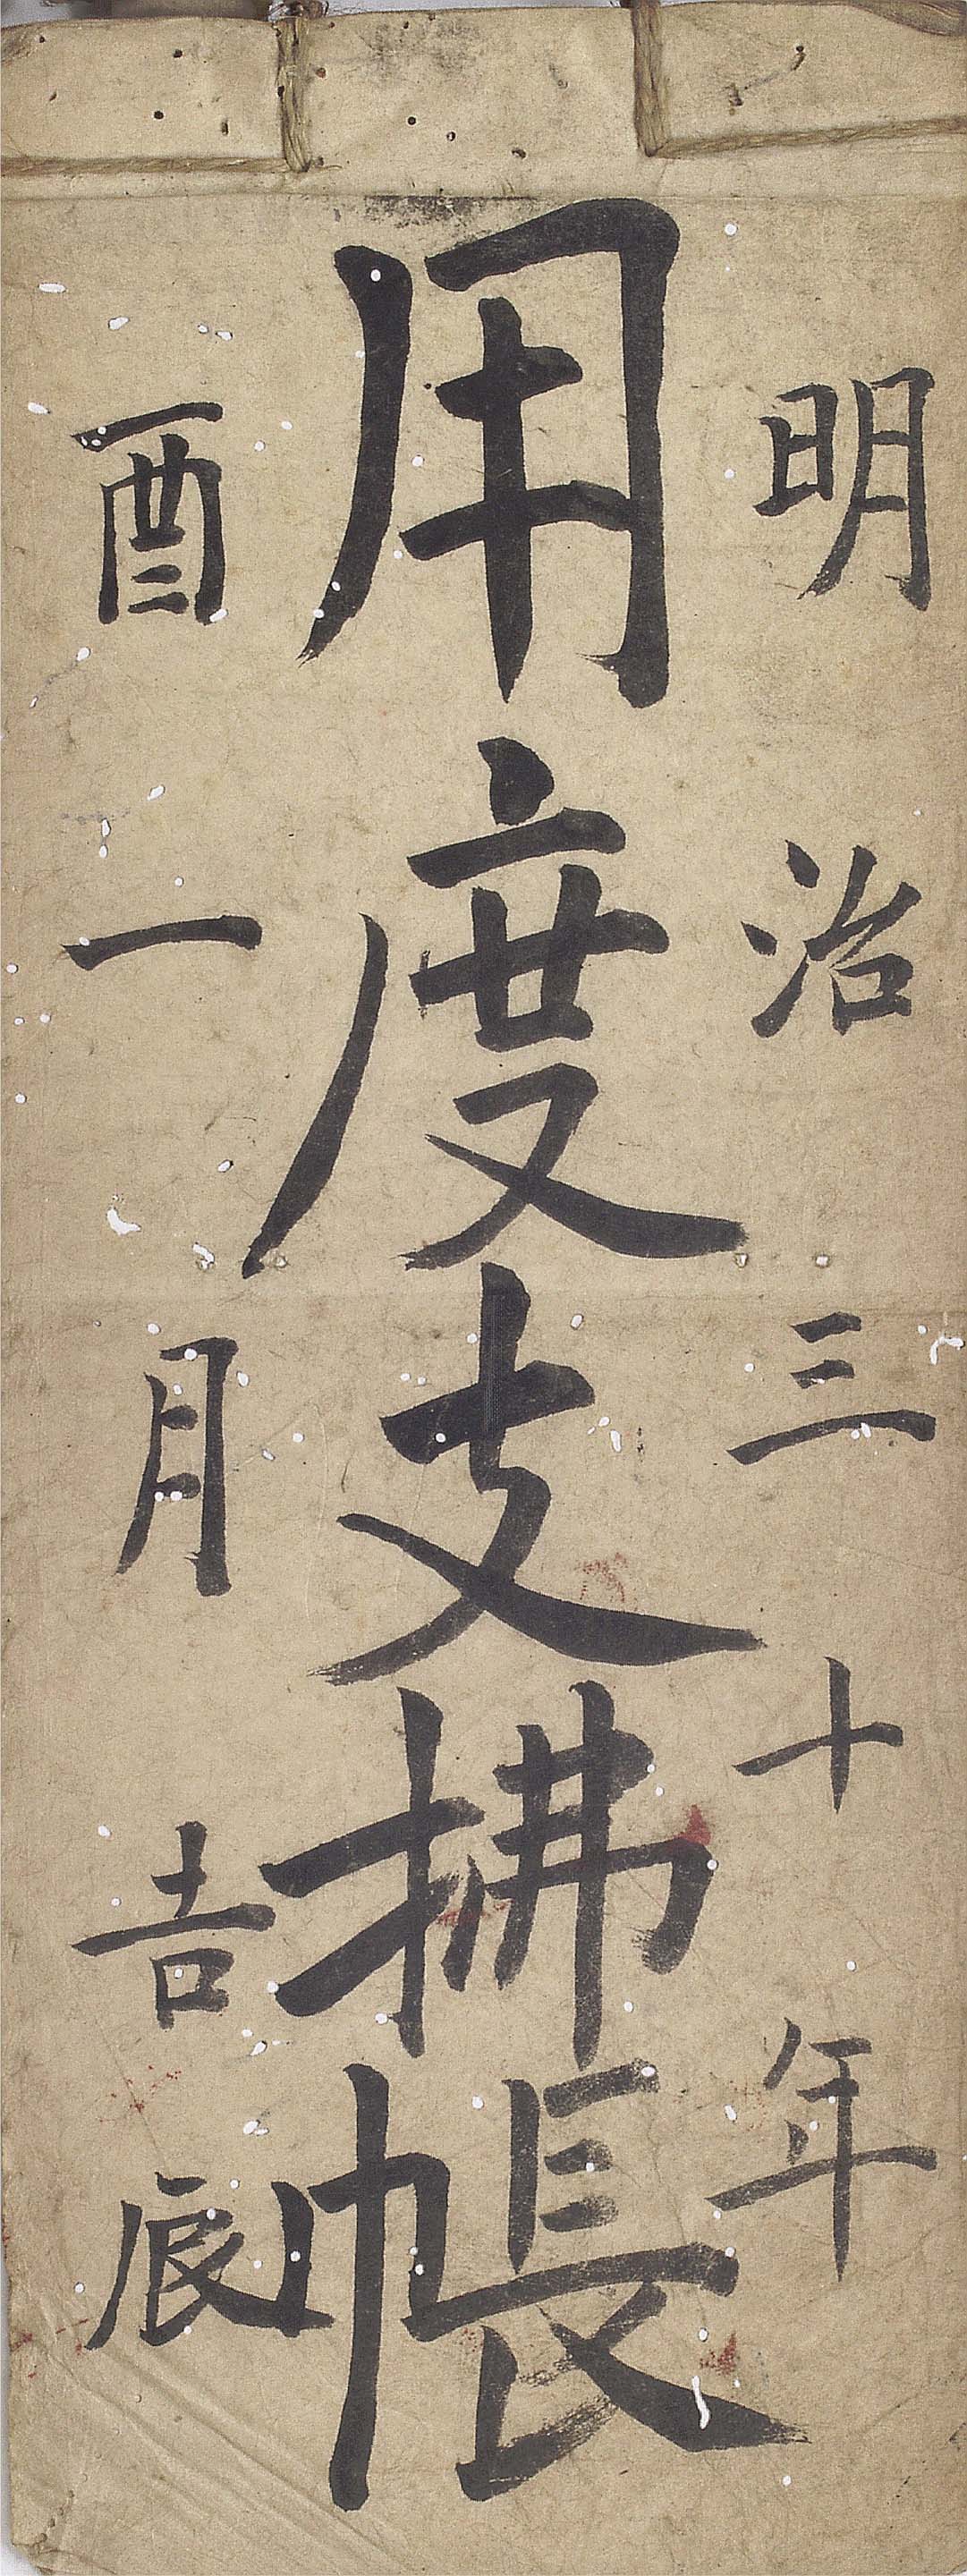 明治三十年
用度支拂帳
酉一月吉辰